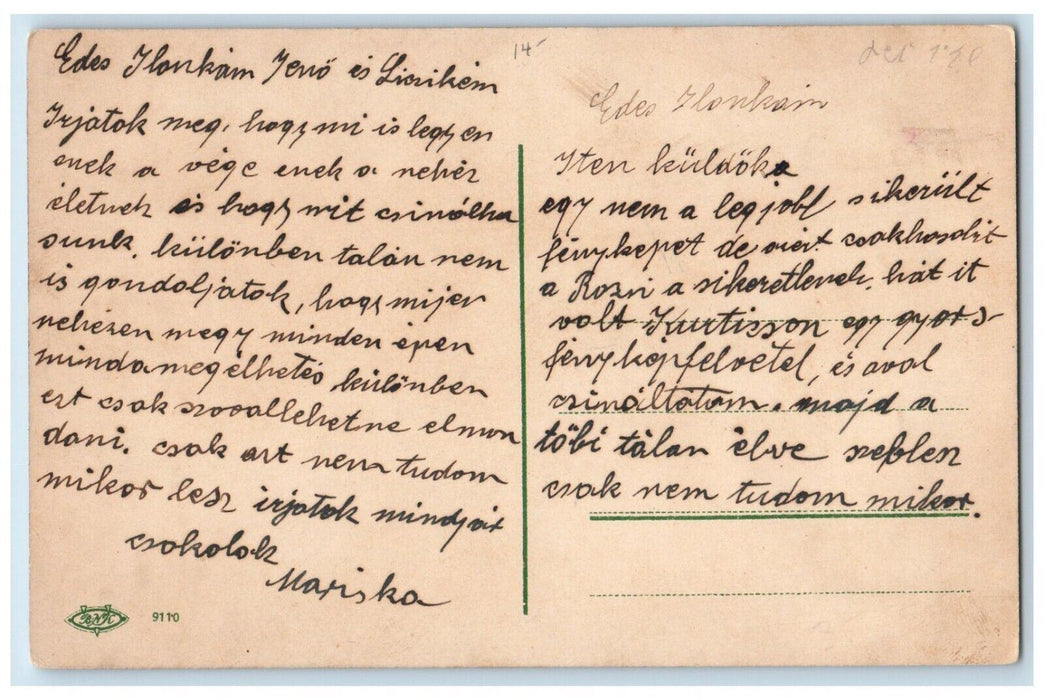 Edes Ilonkám Jenő és Licikém
Irjátok meg, hogy mi is legyen
enek a vége enek a nehéz
életnek és hogy mit csinálha
sunk. különben talán nem
is gondoljátok, hogy mijen
nehézen megy minden épen
minda megélhetés különben
ezt csak szoval lehetne elmon
dani. csak azt nem tudom
mikor lesz irjatok mindjár
csokolok
Mariska
9110
14
Edes Ilonkám
Iten küldök
egy nem a legjobl sikerült
fényképet de
a Rozsi a sikeretlenek. hát it
volt egy gyors-
fényképfelvétel, és aval
csináltatam. majd a
többi tálan élve szeblesz
csak nem tudom mikor.